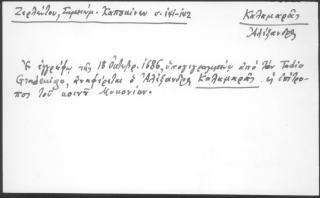 Ζερλέντου, Σύμμεικ. Καποδίσων σ. 141-142
Καλαμαρᾶς
Ἀλέξανδρος
Ἐν ἐγγράφῳ τῆς 18 Ὀκτωβρ. 1686, ὑπογεγραμμένῳ ἀπὸ τὸν Tadio
Gradenigo, ἀναφέρεται ὁ Ἀλέξανδρος Καλαμαρᾶς ὡς ἐπίτρο-
πος τοῦ κοινοῦ Μυκονίων.